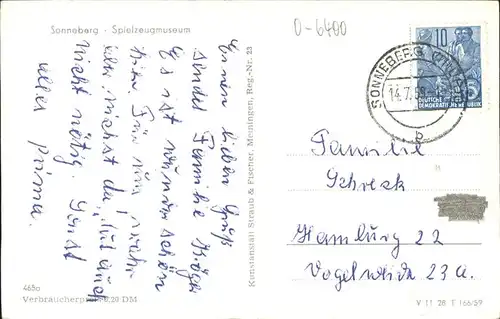 Sonneberg · Spielzeugmuseum
0-6400
Einen lieben Gruß
sendet Familie
Es ist wunderschön
hier. Für uns
aber nichst da, tut auch
nicht nötig. Sonst
alles prima.
Kunstanstalt Straub & Fischer, Meiningen, Reg.-Nr. 23
10
DEUTSCHE
DEMOKRATISCHE REPUBLIK
SONNEBERG (THÜR)
14.7.59
b
Familie
Schreck
Hamburg 22
Vogelweide 23a.
465a
Verbraucherpreis 0,20 DM
V 11 28 T 166/59